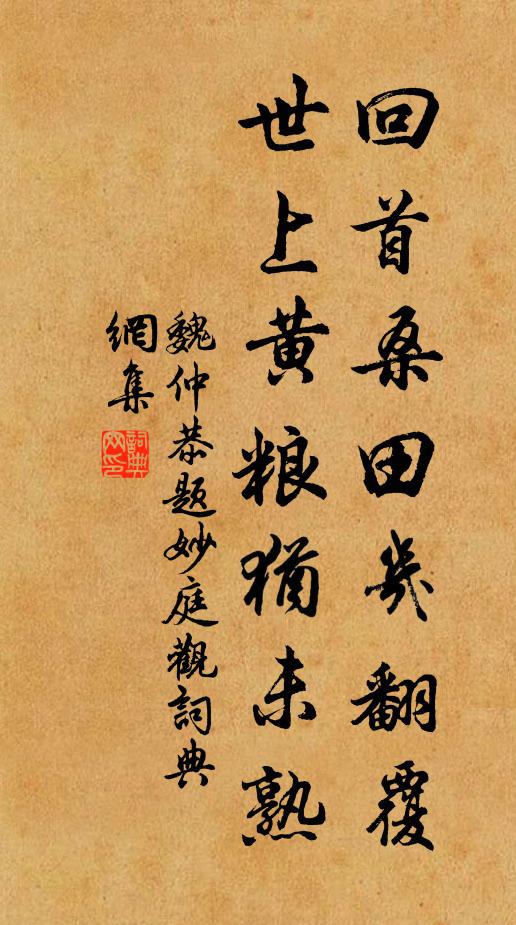 回首桑田幾翻覆
世上黄粮猶未熟
魏仲恭題妙庭觀詞典
網集
詞典
网印